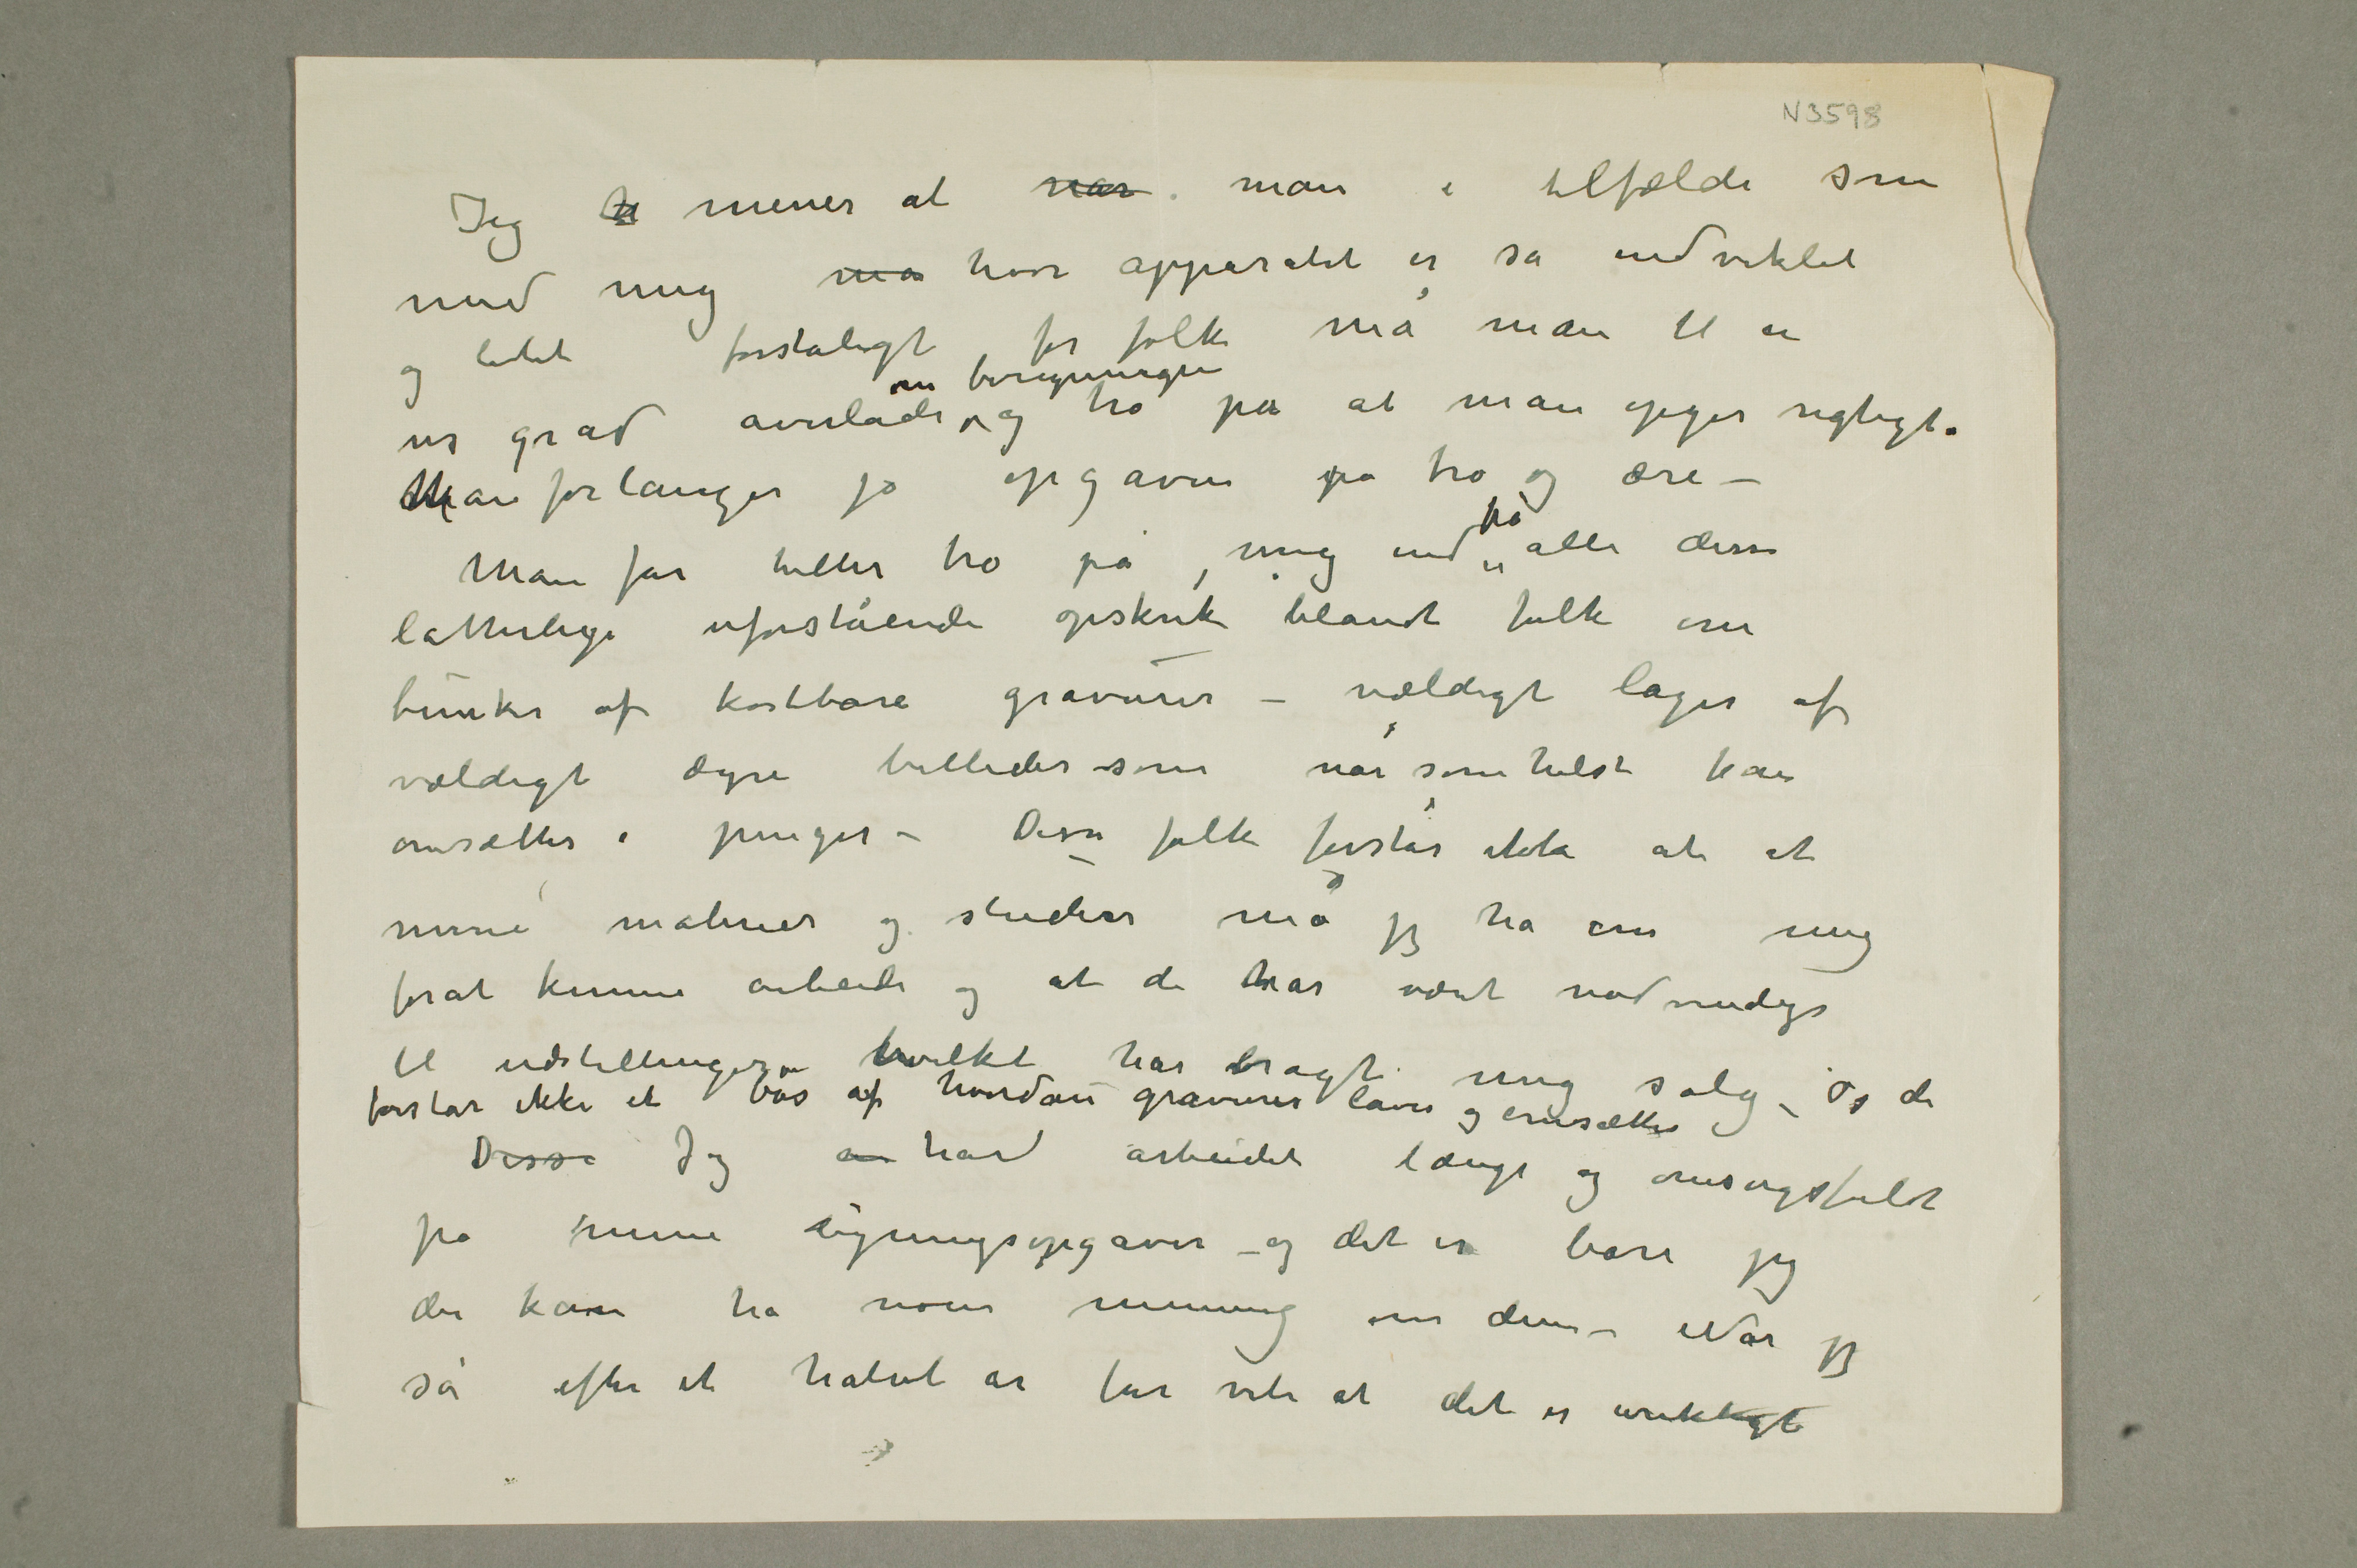 N3598
Jeg mener at når man i tilfælde som
med mig må hvor apparatet er så indviklet
og lidet forståligt for folk må man til en
om beregningen
vis grad averlade og tro på at man opgir rigtigt.
Man forlanger jo opgaven på tro og ære –
på
Man får heller tro på mig end alle disse
latterlige uforstående opskrik blandt folk om
bunker af kostbare gravurer – vældigt lager af
vældigt dyre billeder som når somhelst kan
omsættes i penger – Disse folk forstår ikke at at
mine malerier og studier må jeg ha om mig
forat kunne arbeide og at de har været nødvendige
til udstillinger hvilket har bragt mig salg – Og de
forstår ikke et bøs af hvordan gravurer laves og omsættes
Disse Jeg har arbeidet længe og omsorgsfuldt
på mine ligningsopgaver – og det er bare jeg
der kan ha noen mening om dem – Når jeg
så efter et halvt år får vite at det er uriktigt